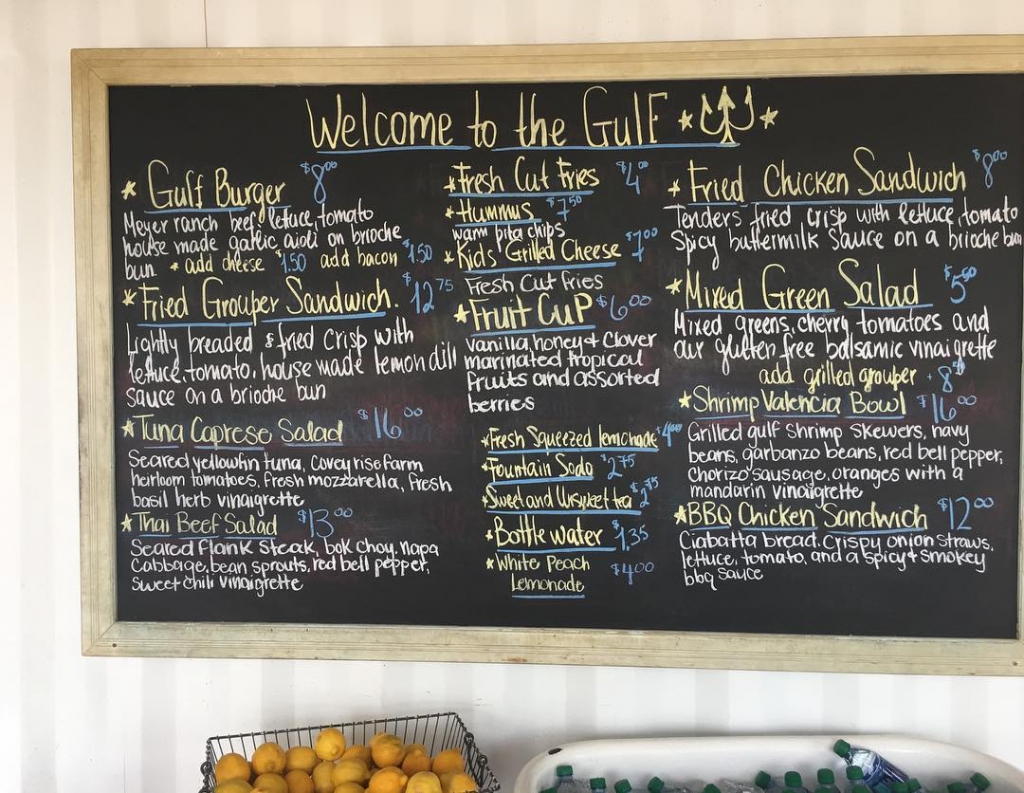 Welcome to the Gulf
Gulf Burger $8.00
Meyer ranch beef, lettuce, tomato
house made garlic aioli on brioche
bun * add cheese $1.50 add bacon $1.50
Fried Grouper Sandwich. $12.75
Lightly breaded & fried crisp with
lettuce, tomato, house made lemon dill
sauce on a brioche bun
Tuna Caprese Salad $16.00
Seared yellowfin tuna, Covey rise farm
heirloom tomatoes, fresh mozzarella, fresh
basil herb vinaigrette
Thai Beef Salad $13.00
Seared flank steak, bok choy, napa
cabbage, bean sprouts, red bell pepper,
sweet chili vinaigrette
Fresh Cut Fries $4.00
Hummus $7.50
warm pita chips
Kids Grilled Cheese $7.00
Fresh Cut fries
Fruit Cup $6.00
vanilla, honey & clover
marinated tropical
fruits and assorted
berries
Fresh Squeezed lemonade $4.00
Fountain Soda $2.75
Sweet and Unsweet tea $2.75
Bottle water $1.35
White Peach $4.00
Lemonade
Fried Chicken Sandwich $8.00
Tenders fried crisp with lettuce, tomato
Spicy buttermilk sauce on a brioche bun
Mixed Green Salad $5.50
Mixed greens, cherry tomatoes and
our gluten free balsamic vinaigrette
add grilled grouper
Shrimp Valencia Bowl $16.00
Grilled gulf shrimp skewers, navy
beans, garbanzo beans, red bell pepper,
chorizo sausage, oranges with a
mandarin vinaigrette
BBQ Chicken Sandwich $12.00
Ciabatta bread, crispy onion straws,
lettuce, tomato, and a spicy & smokey
bbq sauce